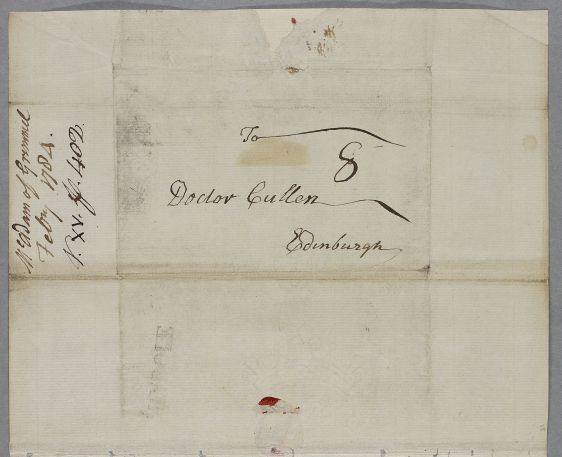 To
8
Doctor Cullen
Edinburgh
Mr Adam of Grimmet
Feby 1784.
V. XV. ff. 402.